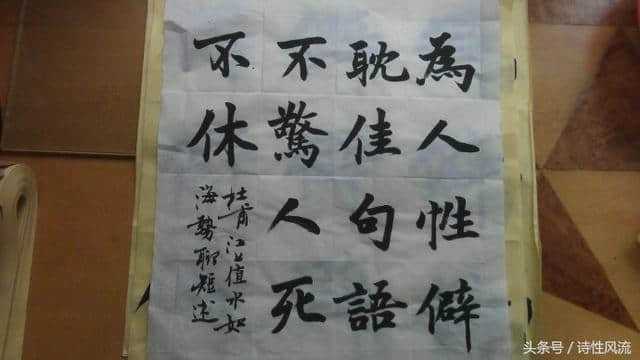 為人性僻
耽佳句語
不驚人死
不休
杜甫江上值水如
海勢聊短述
头条号 / 诗性风流